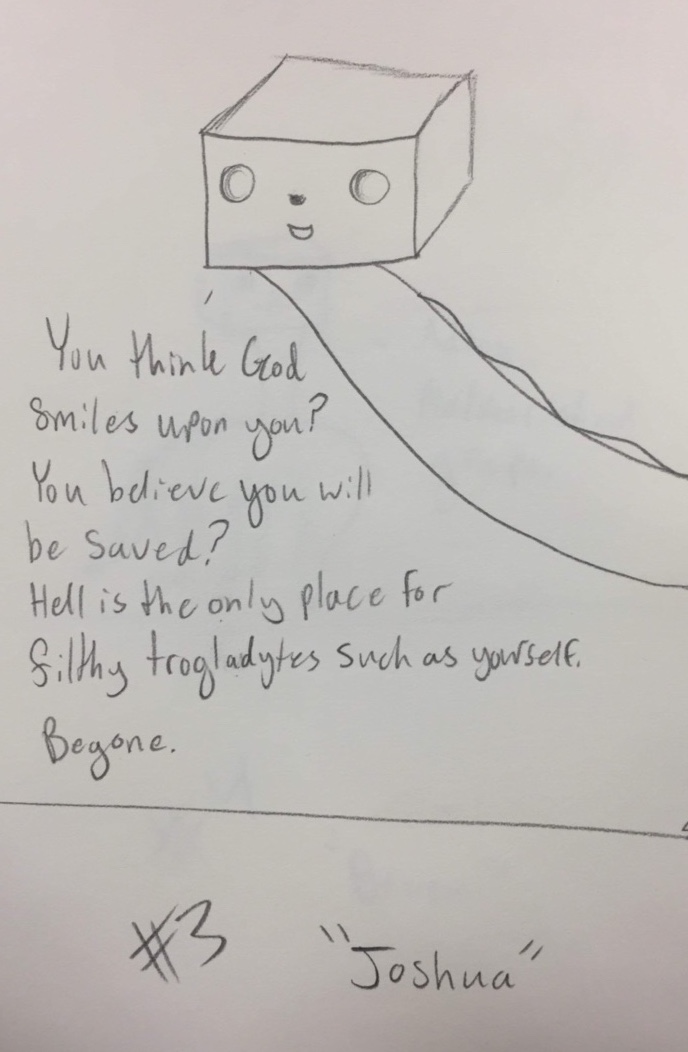 You think God
smiles upon you?
You believe you will
be saved?
Hell is the only place for
filthy trogladytes such as yourself.
Begone.
#3 "Joshua"